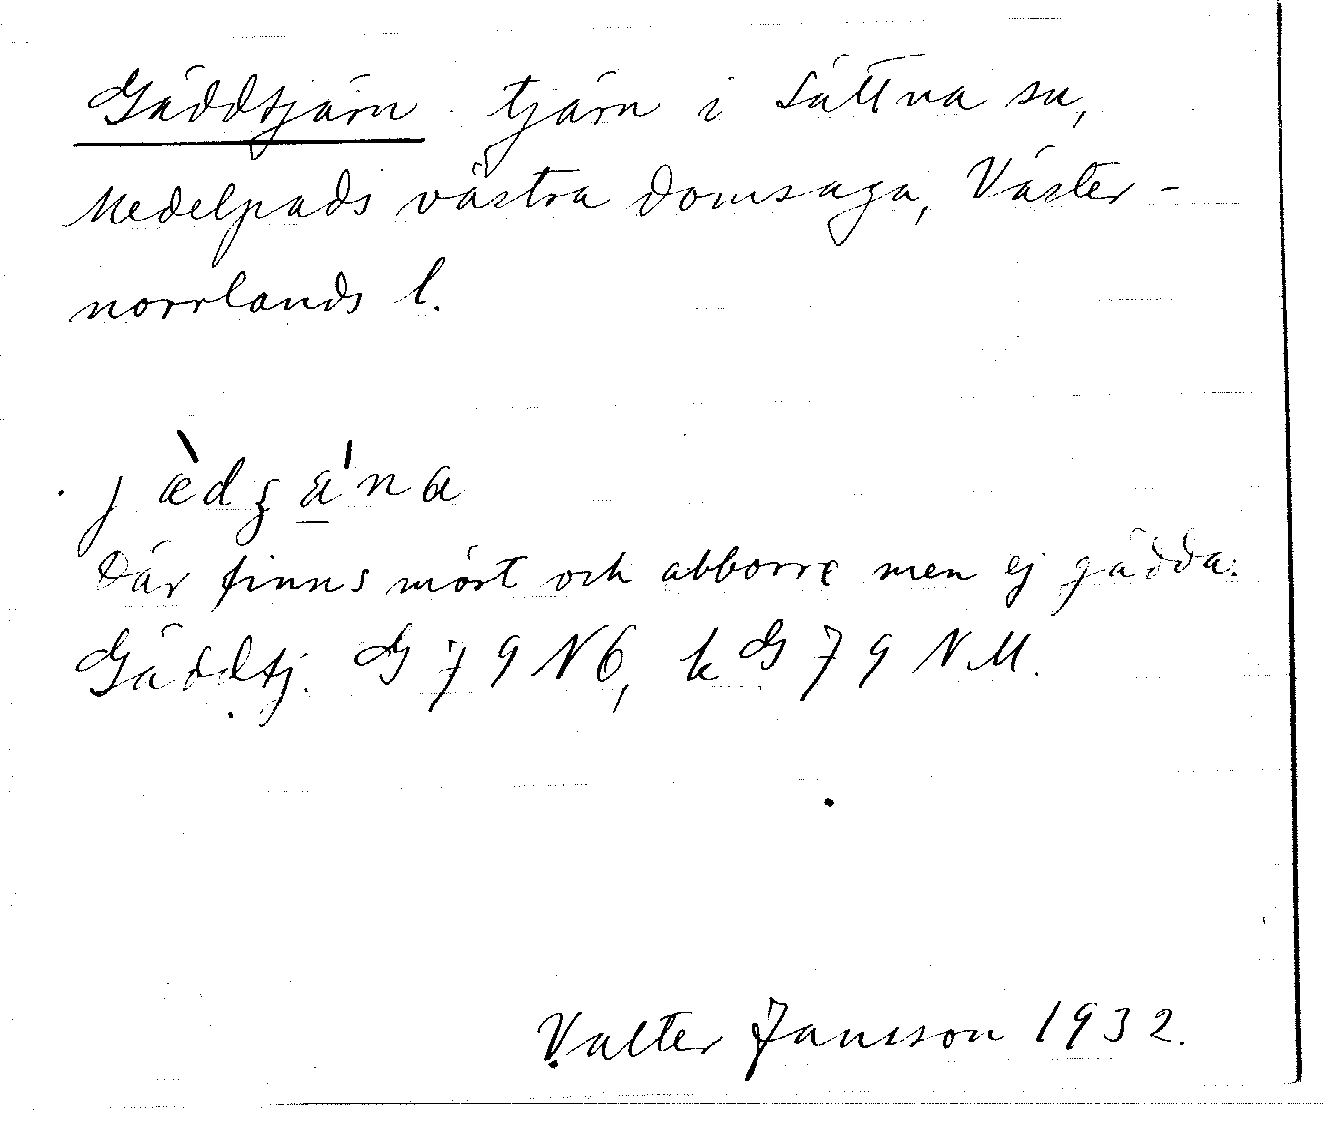 Gäddtjärn tjärn i Sättna sn,
Medelpads västra domsaga, Väster-
norrlands l.
j æ̀dʒa̱'na
Där finns mört och abborre men ej gädda.
Gäddtj. G 79 N6, k G 79 NM.
Valter Jansson 1932.